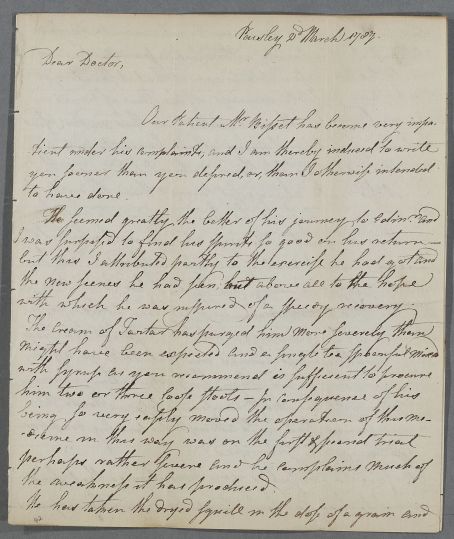 Paisley 2d March 1787.
Dear Doctor,
Our Patient Mr. Bisset has become very impa-
tient under his complaints, and I am thereby induced to write
you sooner than you desired, or, than I otherwise intended
to have done.
He seemed greatly the better of his journey to Edinr. and
I was surprised to find his spirits so good on his return –
but this I attributed partly to the exercise he had got and
the new scenes he had seen, but above all to the hope
with which he was inspired of a speedy recovery.
The cream of Tartar has purged him more severely than
might have been expected and a single tea spoonful mixed
with syrup as you recommend is sufficient to procure
him two or three loose stools – in consequence of his
being so very easily moved the operation of this me-
-dicine in this way was on the first & second trial
perhaps rather severe and he complains much of
the weakness it has produced.
He has taken the dryed squill in the dose of a grain and